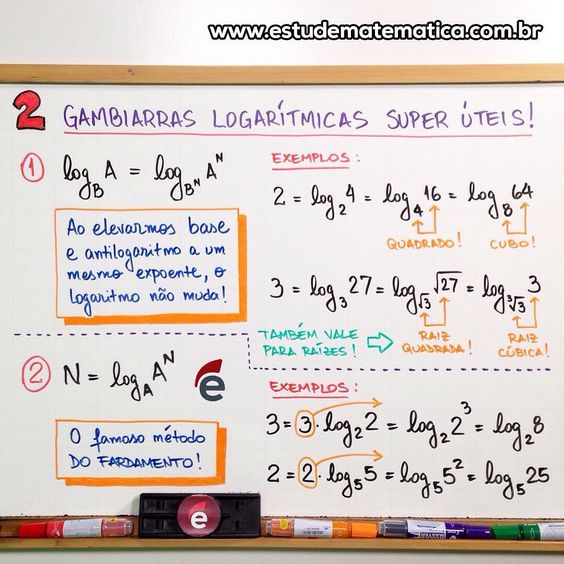 www.estudematematica.com.br
2 GAMBIARRAS LOGARÍTMICAS SUPER ÚTEIS!
① log_B A = log_{B^N} A^N
Ao elevarmos base
e antilogaritmo a um
mesmo expoente, o
logaritmo não muda!
EXEMPLOS:
2 = log_2 4 = log_4 16 = log_8 64
QUADRADO! CUBO!
3 = log_3 27 = log_{√3} √27 = log_{∛3} 3
TAMBÉM VALE
PARA RAÍZES!
RAIZ
QUADRADA!
RAIZ
CÚBICA!
② N = log_A A^N
e
O famoso método
DO FARDAMENTO!
EXEMPLOS:
3 = 3·log_2 2 = log_2 2^3 = log_2 8
2 = 2·log_5 5 = log_5 5^2 = log_5 25
e